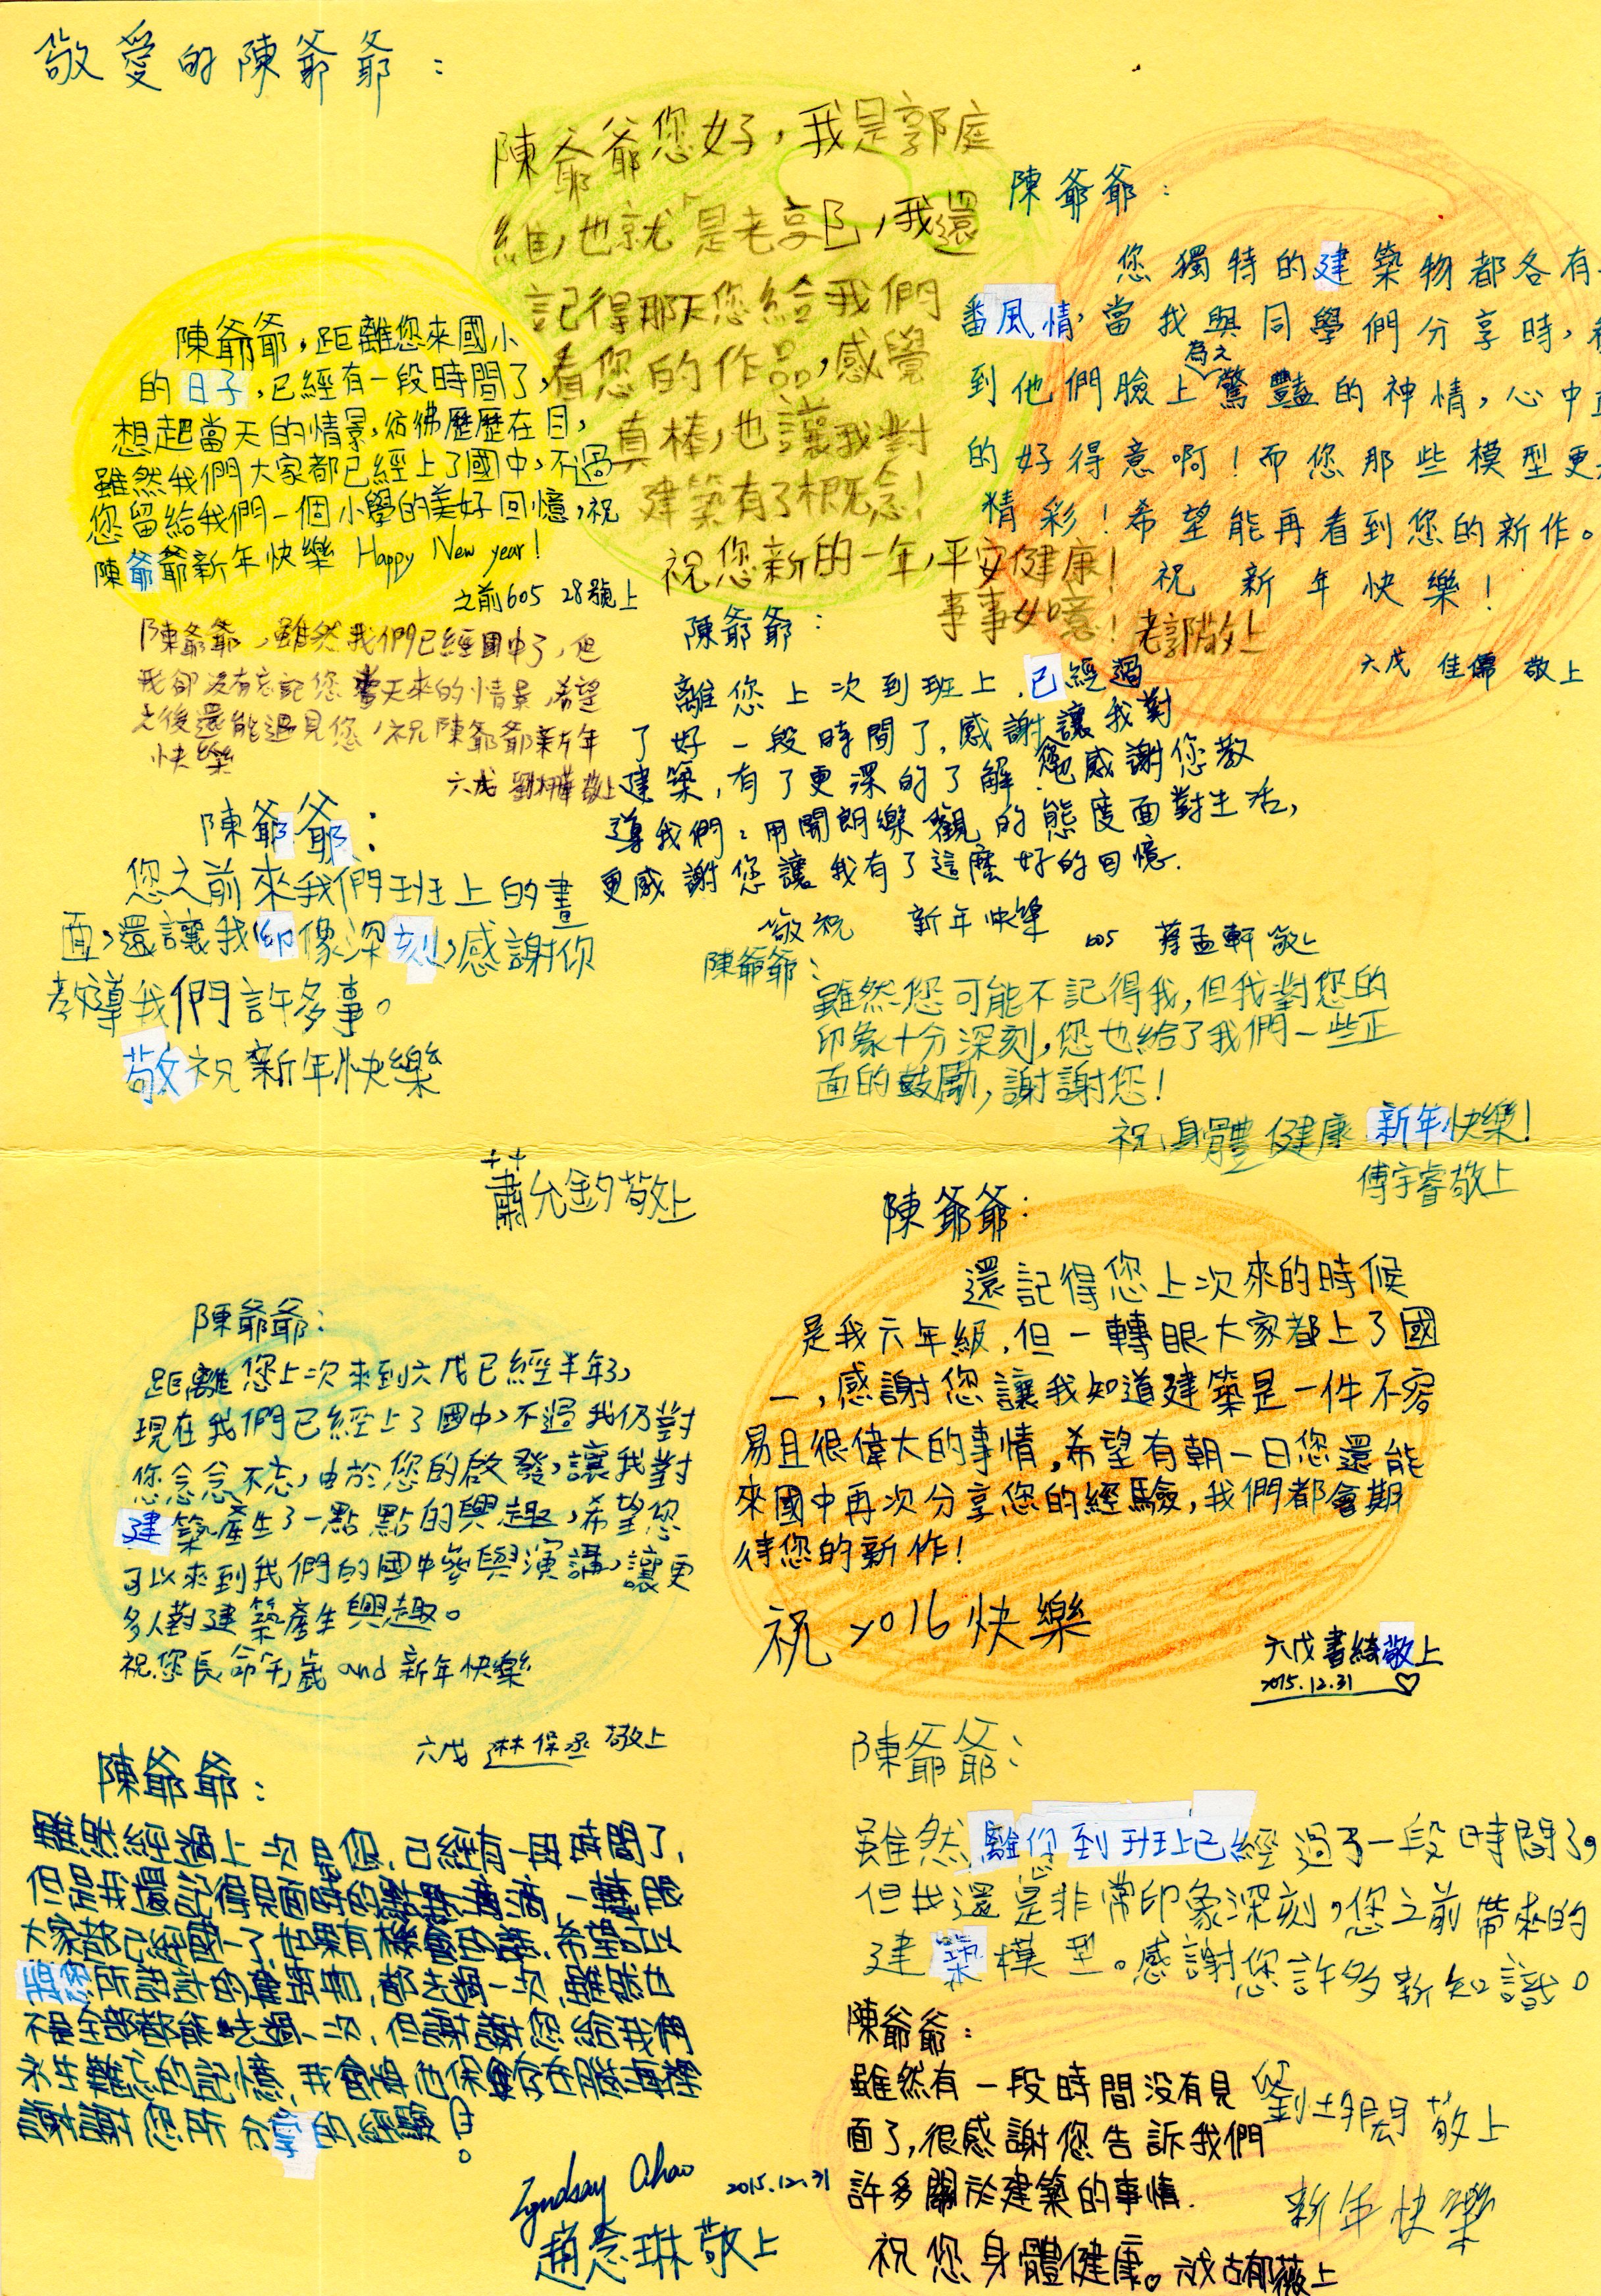 敬愛的陳爺爺：
陳爺爺您好，我是郭庭
維，也就是老享阝，我還
記得那天您給我們
看您的作品，感覺
真棒，也讓我對
建築有了概念！
祝您新的一年，平安健康！
事事如意！老郭敬上
陳爺爺：
您獨特的建築物都各有
番風情，當我與同學們分享時，
到他們臉上為之驚豔的神情，心中
的好得意啊！而您那些模型更
精彩！希望能再看到您的新作。
祝 新年快樂！
六戊 佳儒 敬上
陳爺爺，距離您來國小
的日子，已經有一段時間了，
想起當天的情景，彷彿歷歷在目，
雖然我們大家都已經上了國中，不過
您留給我們一個小學的美好回憶，祝
陳爺爺新年快樂 Happy New year!
之前605 28號上
陳爺爺，雖然我們已經國中了，但
我卻沒有忘記您當天來的情景，希望
之後還能遇見您，祝陳爺爺新年
快樂
六戊 劉 敬上
陳爺爺：
離您上次到班上，已經過
了好一段時間了，感謝讓我對
建築，有了更深的了解，感謝您教
導我們：用開朗樂觀的態度面對生活，
更感謝您讓我有了這麼好的回憶.
敬祝 新年快樂
605 蔡孟軒 敬上
陳爺爺：
您之前來我們班上的畫
面，還讓我印像深刻，感謝你
教導我們許多事。
敬祝新年快樂
蕭允鈞敬上
陳爺爺：
雖然您可能不記得我，但我對您的
印象十分深刻，您也給了我們一些正
面的鼓勵，謝謝您！
祝 身體健康 新年快樂！
傅宇睿敬上
陳爺爺：
還記得您上次來的時候
是我六年級，但一轉眼大家都上了國
一，感謝您讓我知道建築是一件不容
易且很偉大的事情，希望有朝一日您還能
來國中再次分享您的經驗，我們都會期
待您的新作！
祝 2016快樂
六戊書綺敬上
2015.12.31 ♡
陳爺爺：
距離您上次來到六戊已經半年了，
現在我們已經上了國中，不過我仍對
您念念不忘，由於您的啟發，讓我對
建築產生了一點點的興趣，希望您
可以來到我們的國中參與演講，讓更
多人對建築產生興趣。
祝您長命百歲 and 新年快樂
六戊 林保丞 敬上
陳爺爺：
雖然經過上次見您，已經有一段時間了，
但是我還記得見面時的點點滴滴，一轉眼
大家都已經國一了，如果有機會的話，希望可以
將您所設計的建築物，都去過一次，雖然也
不是全部都能去過一次，但謝謝您給我們
永生難忘的記憶，我會將他保存在腦海裡
謝謝您所分享的經驗！。
Lyndsay Chao 2015.12.31
趙念琳敬上
陳爺爺：
雖然離您到班上已經過了一段時間了，
但我還是非常印象深刻，您之前帶來的
建築模型。感謝您許多新知識。
敬上
新年快樂
陳爺爺：
雖然有一段時間沒有見
面了，很感謝您告訴我們
許多關於建築的事情.
祝您身體健康。六戊古郁薇上